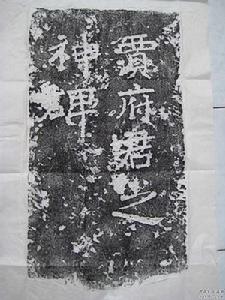 賈府君之
神碑